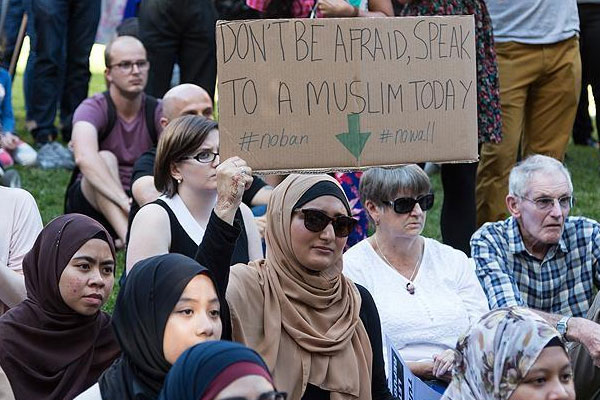 DON'T BE AFRAID, SPEAK
TO A MUSLIM TODAY
#noban #nowall